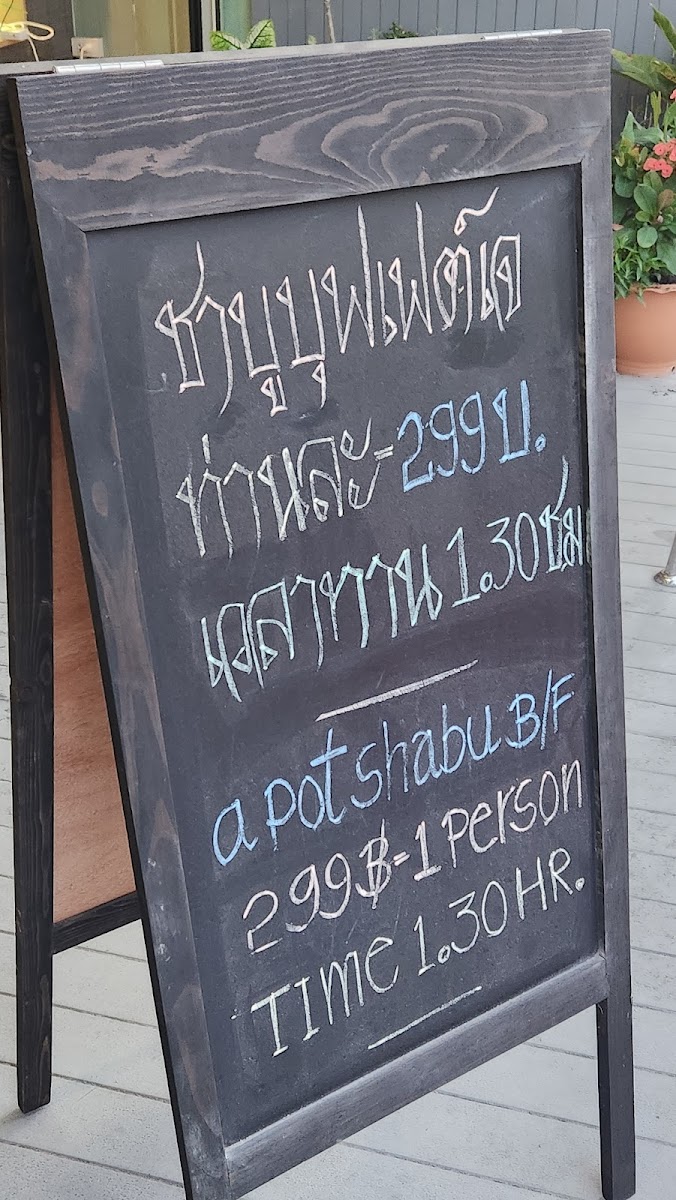 ชาบูบุฟเฟต์เจ
ท่านละ=299บ.
เวลาทาน 1.30ชม
a pot shabu B/F
299฿=1 person
TIME 1.30 HR.